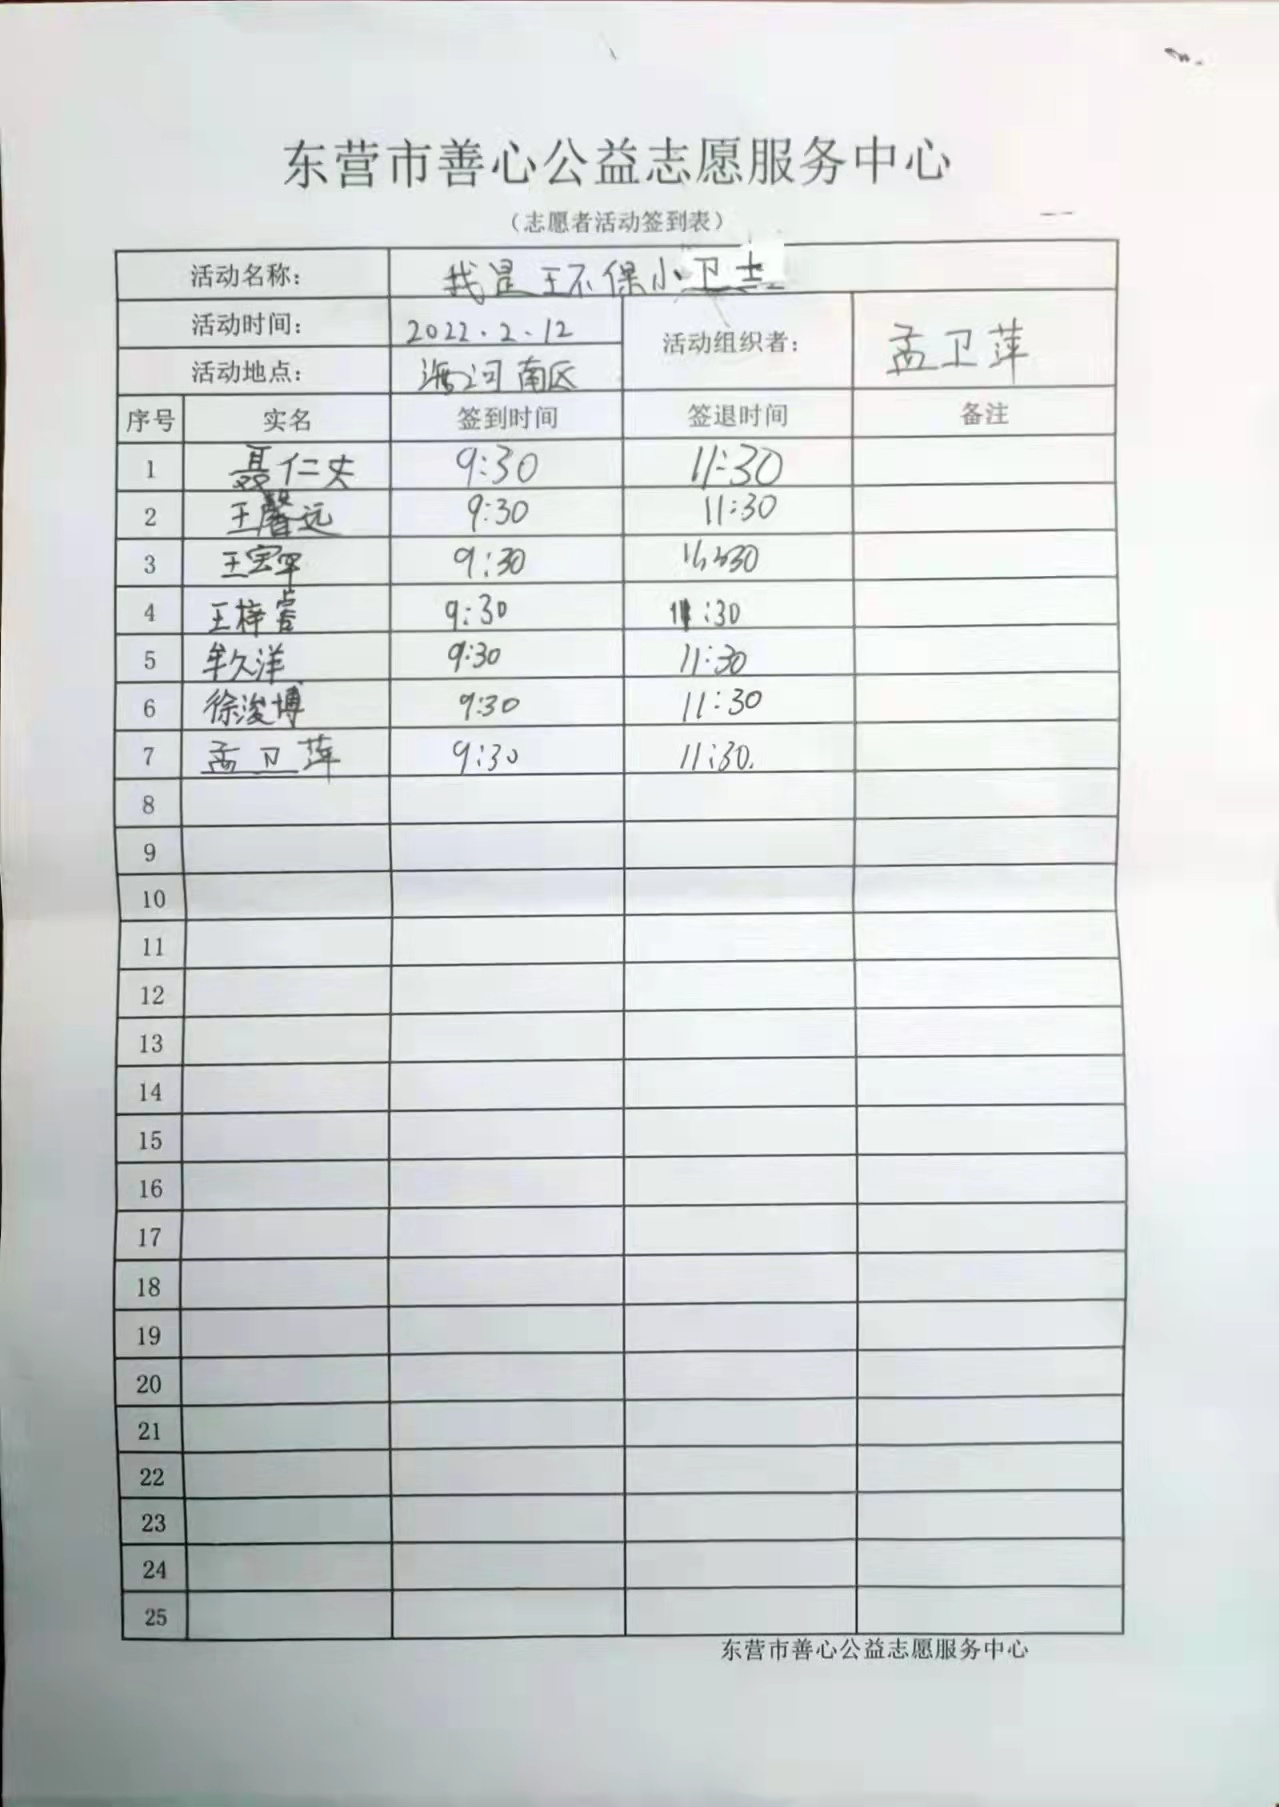 东营市善心公益志愿服务中心
（志愿者活动签到表）
活动名称： 我是环保小卫士
活动时间： 2022.2.12 活动组织者： 孟卫萍
活动地点： 海河南区
序号 实名 签到时间 签退时间 备注
1 聂仁 9:30 11:30
2 王馨远 9:30 11:30
3 王宝 9:30 11:30
4 王梓睿 9:30 11:30
5 牟久洋 9:30 11:30
6 徐浚博 9:30 11:30
7 孟卫萍 9:30 11:30.
8
9
10
11
12
13
14
15
16
17
18
19
20
21
22
23
24
25
东营市善心公益志愿服务中心